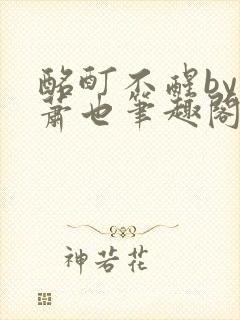 酩酊不醒by
萧也笔趣阁
神若花